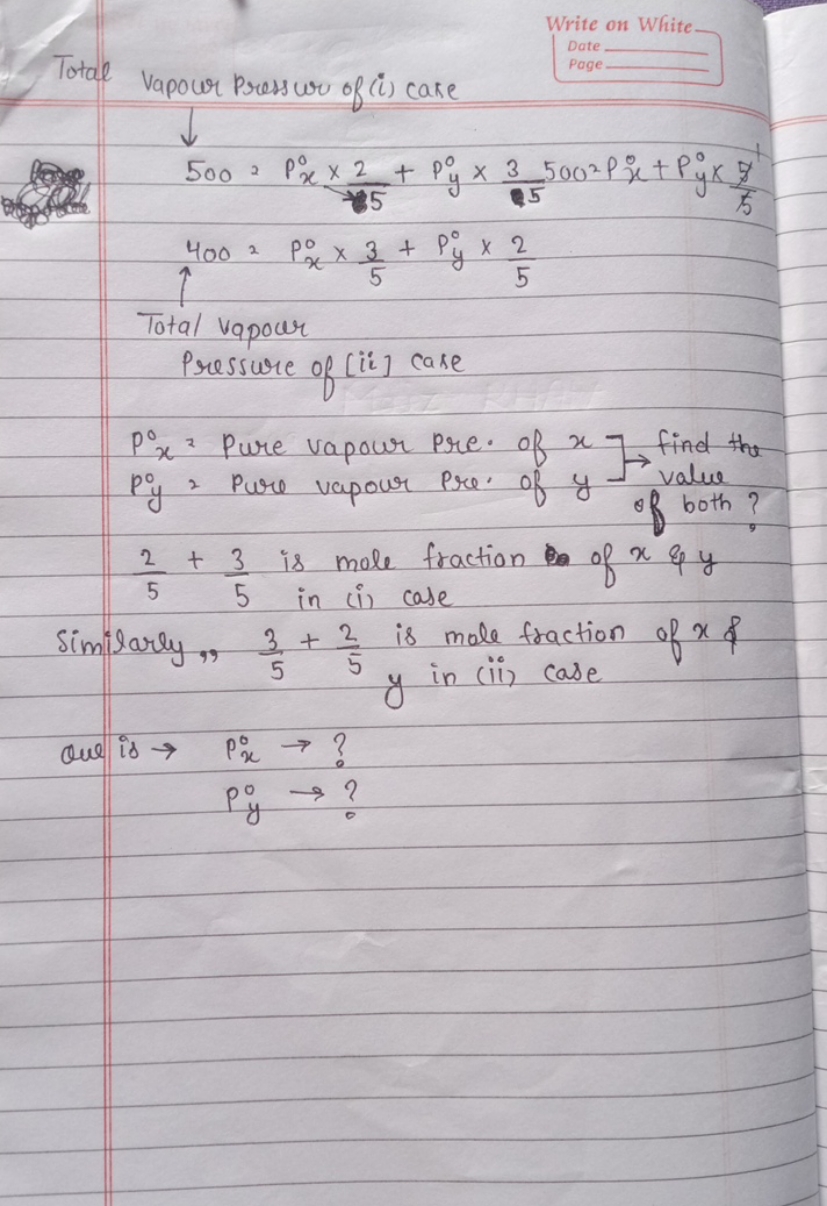 Write on White
Date
Page
Total Vapour Pressur of (i) case
↓
500 = P°x × 2/5 + P°y × 3/5 500 = P°x + P°y × 5/5 1
400 = P°x × 3/5 + P°y × 2/5
↑
Total vapour
Pressure of [ii] case
P°x = Pure vapour Pre. of x ] → find the
P°y = Pure vapour Pre. of y value
of both ?
2/5 + 3/5 is mole fraction of x & y
in (i) case
Similarly ,, 3/5 + 2/5 is mole fraction of x &
y in (ii) case
Que is → P°x → ?
P°y → ?